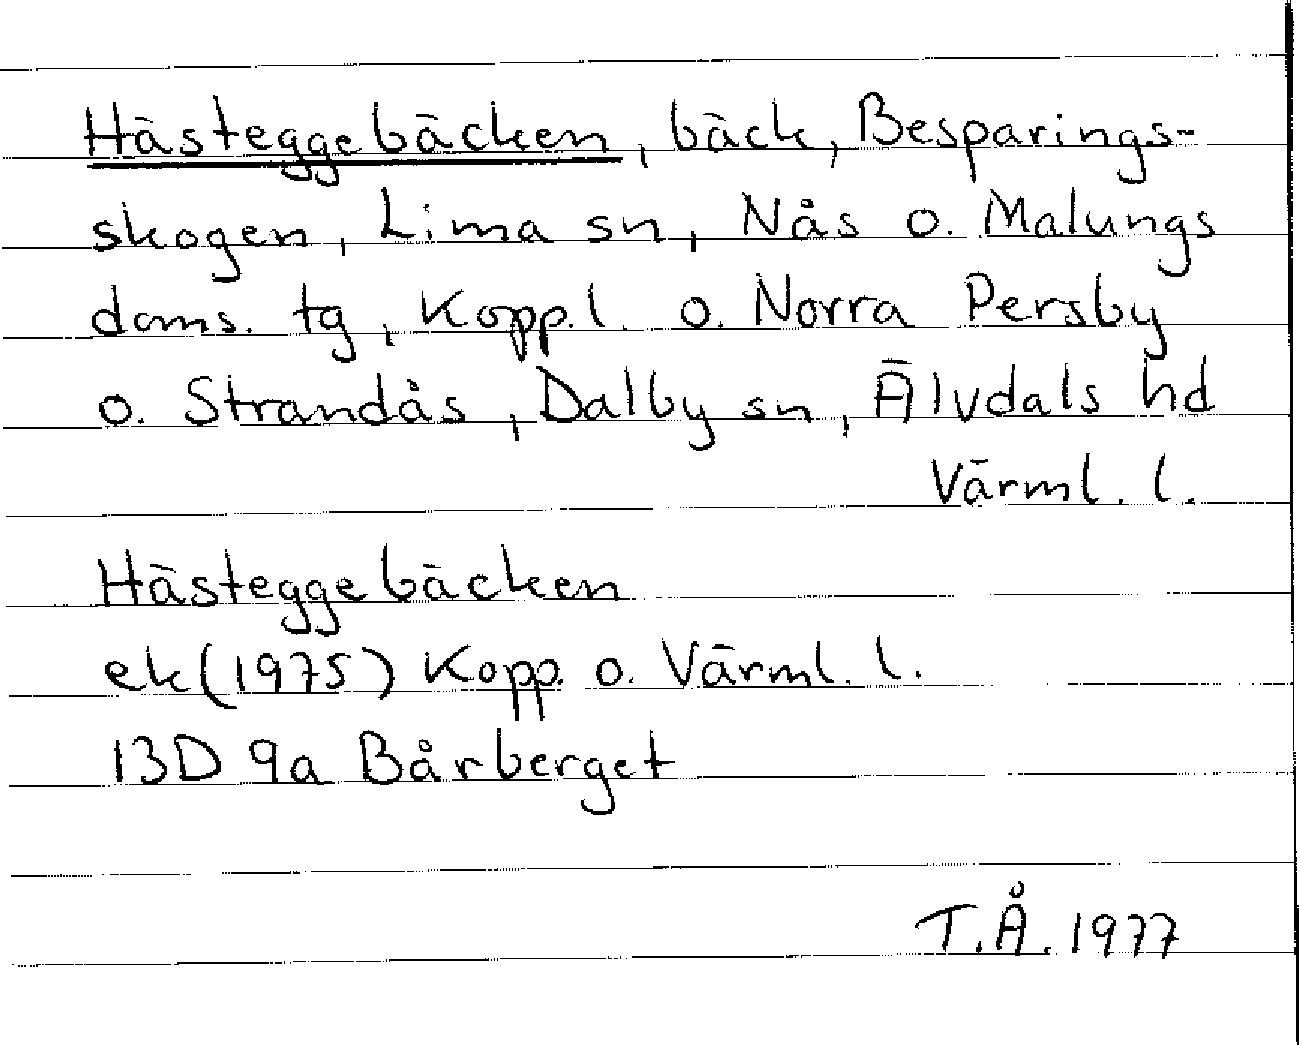 Hästeggebäcken, bäck, Besparings-
skogen, Lima sn, Nås o. Malungs
doms. tg, Kopp.l. o. Norra Persby
o. Strandås, Dalby sn, Älvdals hd
Värml. l.
Hästeggebäcken
ek (1975) Kopp. o. Värml. l.
13D 9a Bårberget
T.Å. 1977